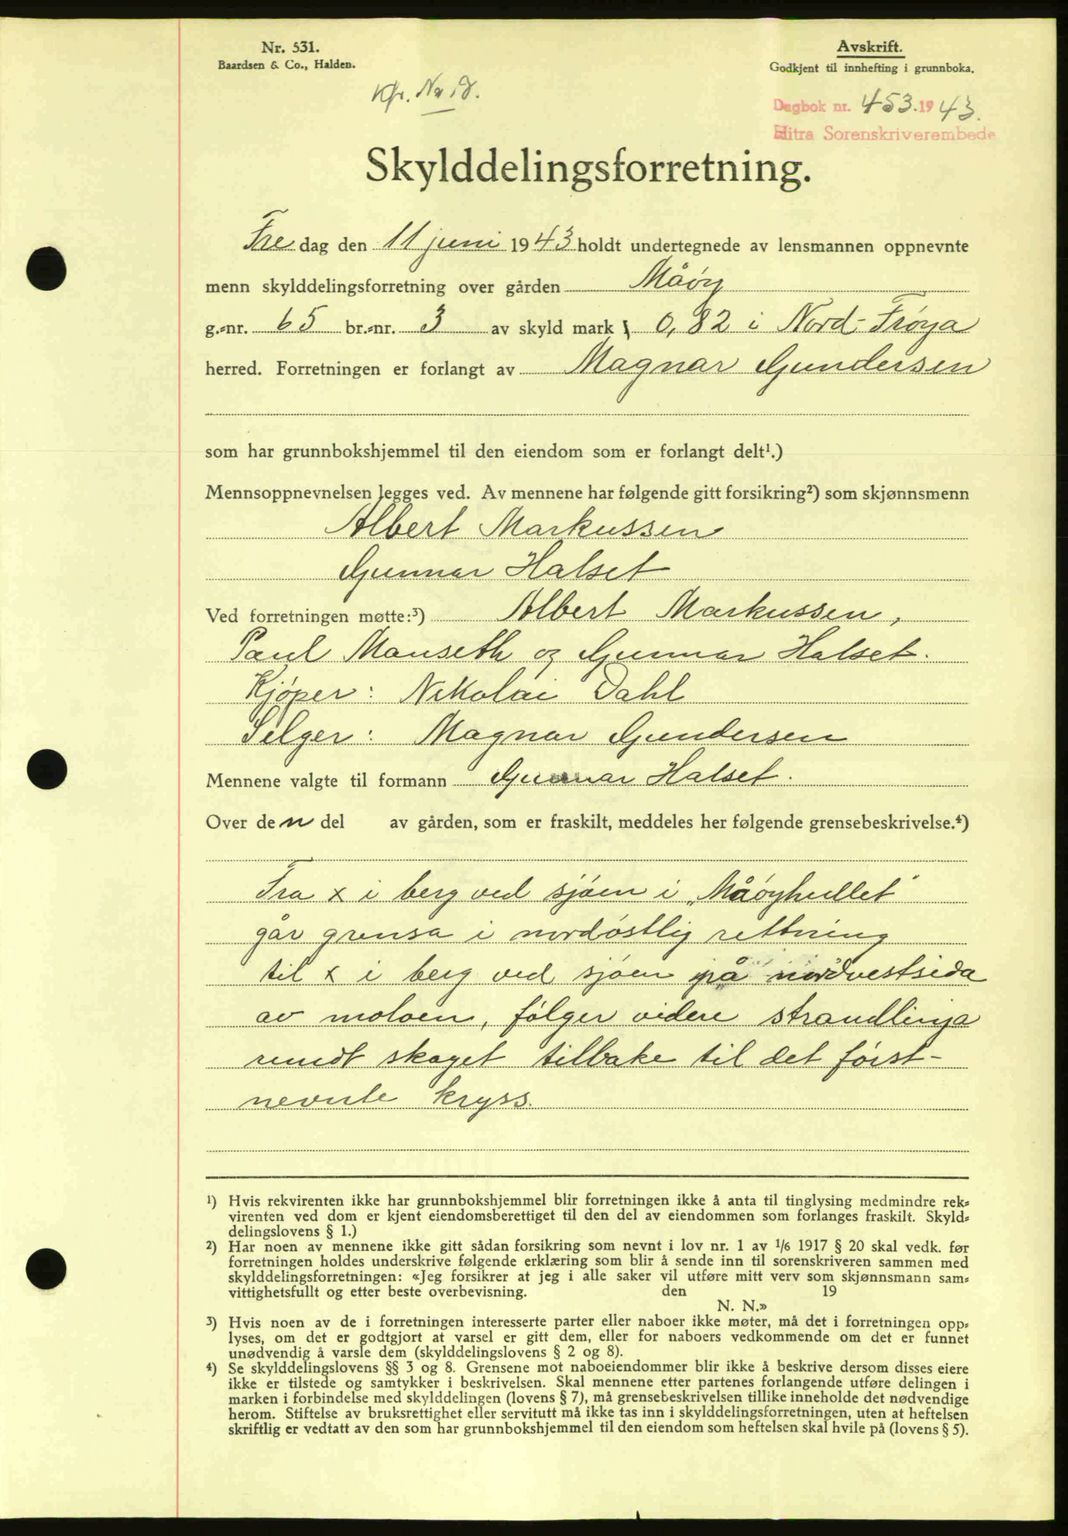 Nr. 531.
Baardsen & Co., Halden.
Avskrift.
Godkjent til innhefting i grunnboka.
Dagbok nr. 453. 1943.
Hitra Sorenskriverembede
Skylddelingsforretning.
Fredag den 11 juni 1943 holdt undertegnede av lensmannen oppnevnte
menn skylddelingsforretning over gården Måøy
g.-nr. 65 br.-nr. 3 av skyld mark 0,82 i Nord-Frøya
herred. Forretningen er forlangt av Magnar Gundersen
som har grunnbokshjemmel til den eiendom som er forlangt delt¹.)
Mennsoppnevnelsen legges ved. Av mennene har følgende gitt forsikring²) som skjønnsmenn
Albert Markussen
Gunnar Halset
Ved forretningen møtte:³) Albert Markussen,
Paul Mauseth og Gunnar Halset.
Kjøper: Nikolai Dahl
Selger: Magnar Gundersen
Mennene valgte til formann Gunnar Halset.
Over den del av gården, som er fraskilt, meddeles her følgende grensebeskrivelse.⁴)
Fra x i berg ved sjøen i „Måøyhullet"
går grensa i nordøstlig rettning
til x i berg ved sjøen på nordvestsida
av moloen, følger videre strandlinja
rundt skaget tilbake til det først-
nevnte kryss.
¹) Hvis rekvirenten ikke har grunnbokshjemmel blir forretningen ikke å anta til tinglysing medmindre rek-
virenten ved dom er kjent eiendomsberettiget til den del av eiendommen som forlanges fraskilt. Skyld-
delingslovens § 1.)
²) Har noen av mennene ikke gitt sådan forsikring som nevnt i lov nr. 1 av 1/6 1917 § 20 skal vedk. før
forretningen holdes underskrive følgende erklæring som blir å sende inn til sorenskriveren sammen med
skylddelingsforretningen: «Jeg forsikrer at jeg i alle saker vil utføre mitt verv som skjønnsmann sam-
vittighetsfullt og etter beste overbevisning. den 19
N. N.»
³) Hvis noen av de i forretningen interesserte parter eller naboer ikke møter, må det i forretningen opp-
lyses, om det er godtgjort at varsel er gitt dem, eller for naboers vedkommende om det er funnet
unødvendig å varsle dem (skylddelingslovens § 2 og 8).
⁴) Se skylddelingslovens §§ 3 og 8. Grensene mot naboeiendommer blir ikke å beskrive dersom disses eiere
ikke er tilstede og samtykker i beskrivelsen. Skal mennene etter partenes forlangende utføre delingen i
marken i forbindelse med skylddelingen (lovens § 7), må grensebeskrivelsen tillike inneholde det nødvendige
herom. Stiftelse av bruksrettighet eller servitutt må ikke tas inn i skylddelingsforretningen, uten at heftelsen
skriftlig er vedtatt av den som har grunnbokshjemmel til den eiendom som heftelsen skal hvile på (lovens § 5).